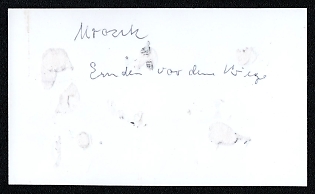 Mrozek
Emden vor dem Kriege